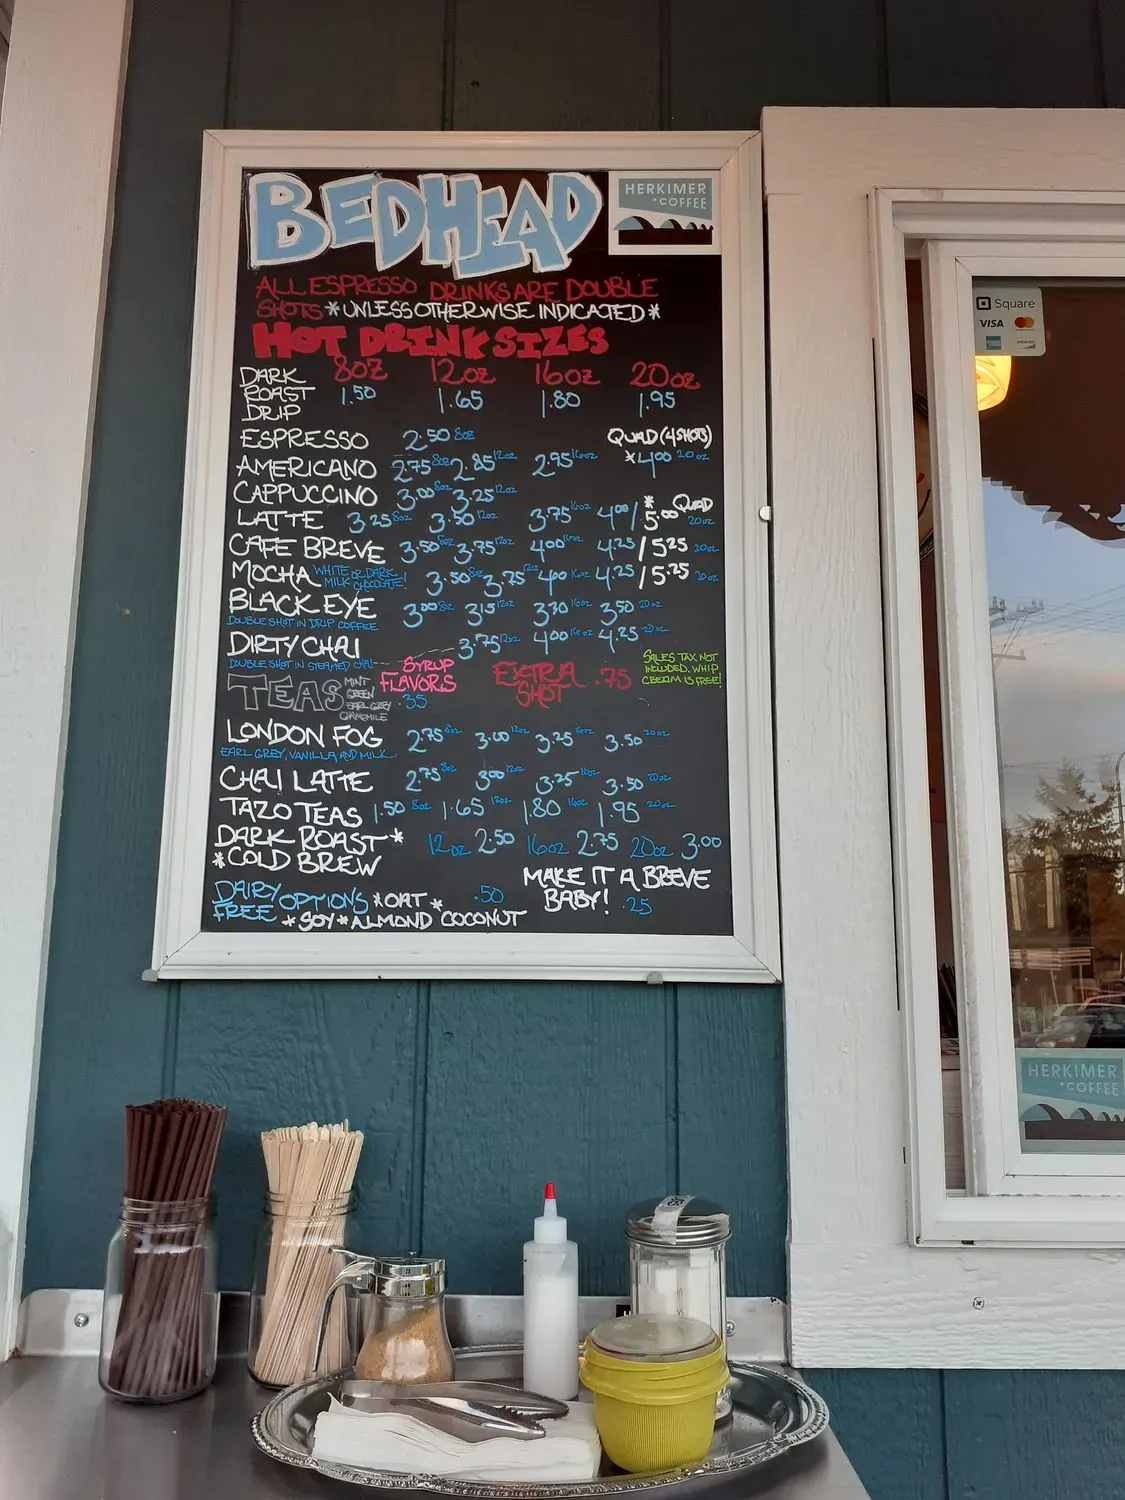 BEDHEAD
HERKIMER
COFFEE
ALL ESPRESSO DRINKS ARE DOUBLE
SHOTS *UNLESS OTHERWISE INDICATED*
HOT DRINK SIZES
8oz 12oz 16oz 20oz
DARK
ROAST 1.50 1.65 1.80 1.95
DRIP
ESPRESSO 2.50 8oz QUAD (4 SHOTS)
AMERICANO 2.75 8oz 2.85 12oz 2.95 16oz *4.00 20oz
CAPPUCCINO 3.00 8oz 3.25 12oz
LATTE 3.25 8oz 3.50 12oz 3.75 16oz 4.00 / *5.00 QUAD 20oz
CAFE BREVE 3.50 8oz 3.75 12oz 4.00 16oz 4.25 / 5.25 20oz
MOCHA WHITE OR DARK MILK CHOCOLATE! 3.50 8oz 3.75 12oz 4.00 16oz 4.25 / 5.25 20oz
BLACK EYE 3.00 8oz 3.15 12oz 3.30 16oz 3.50 20oz
DOUBLE SHOT IN DRIP COFFEE
DIRTY CHAI 3.75 12oz 4.00 16oz 4.25 20oz
DOUBLE SHOT IN STEAMED CHAI
SYRUP
FLAVORS .35
EXTRA
SHOT .75
SALES TAX NOT
INCLUDED. WHIP
CREAM IS FREE!
TEAS MINT
GREEN
EARL GREY
CHAMOMILE
LONDON FOG 2.75 8oz 3.00 12oz 3.25 16oz 3.50 20oz
EARL GREY, VANILLA AND MILK
CHAI LATTE 2.75 8oz 3.00 12oz 3.25 16oz 3.50 20oz
TAZO TEAS 1.50 8oz 1.65 12oz 1.80 16oz 1.95 20oz
DARK ROAST* 12oz 2.50 16oz 2.75 20oz 3.00
*COLD BREW
MAKE IT A BREVE
BABY! .25
DAIRY FREE OPTIONS *OAT* .50
*SOY *ALMOND COCONUT
Square
VISA
HERKIMER
COFFEE